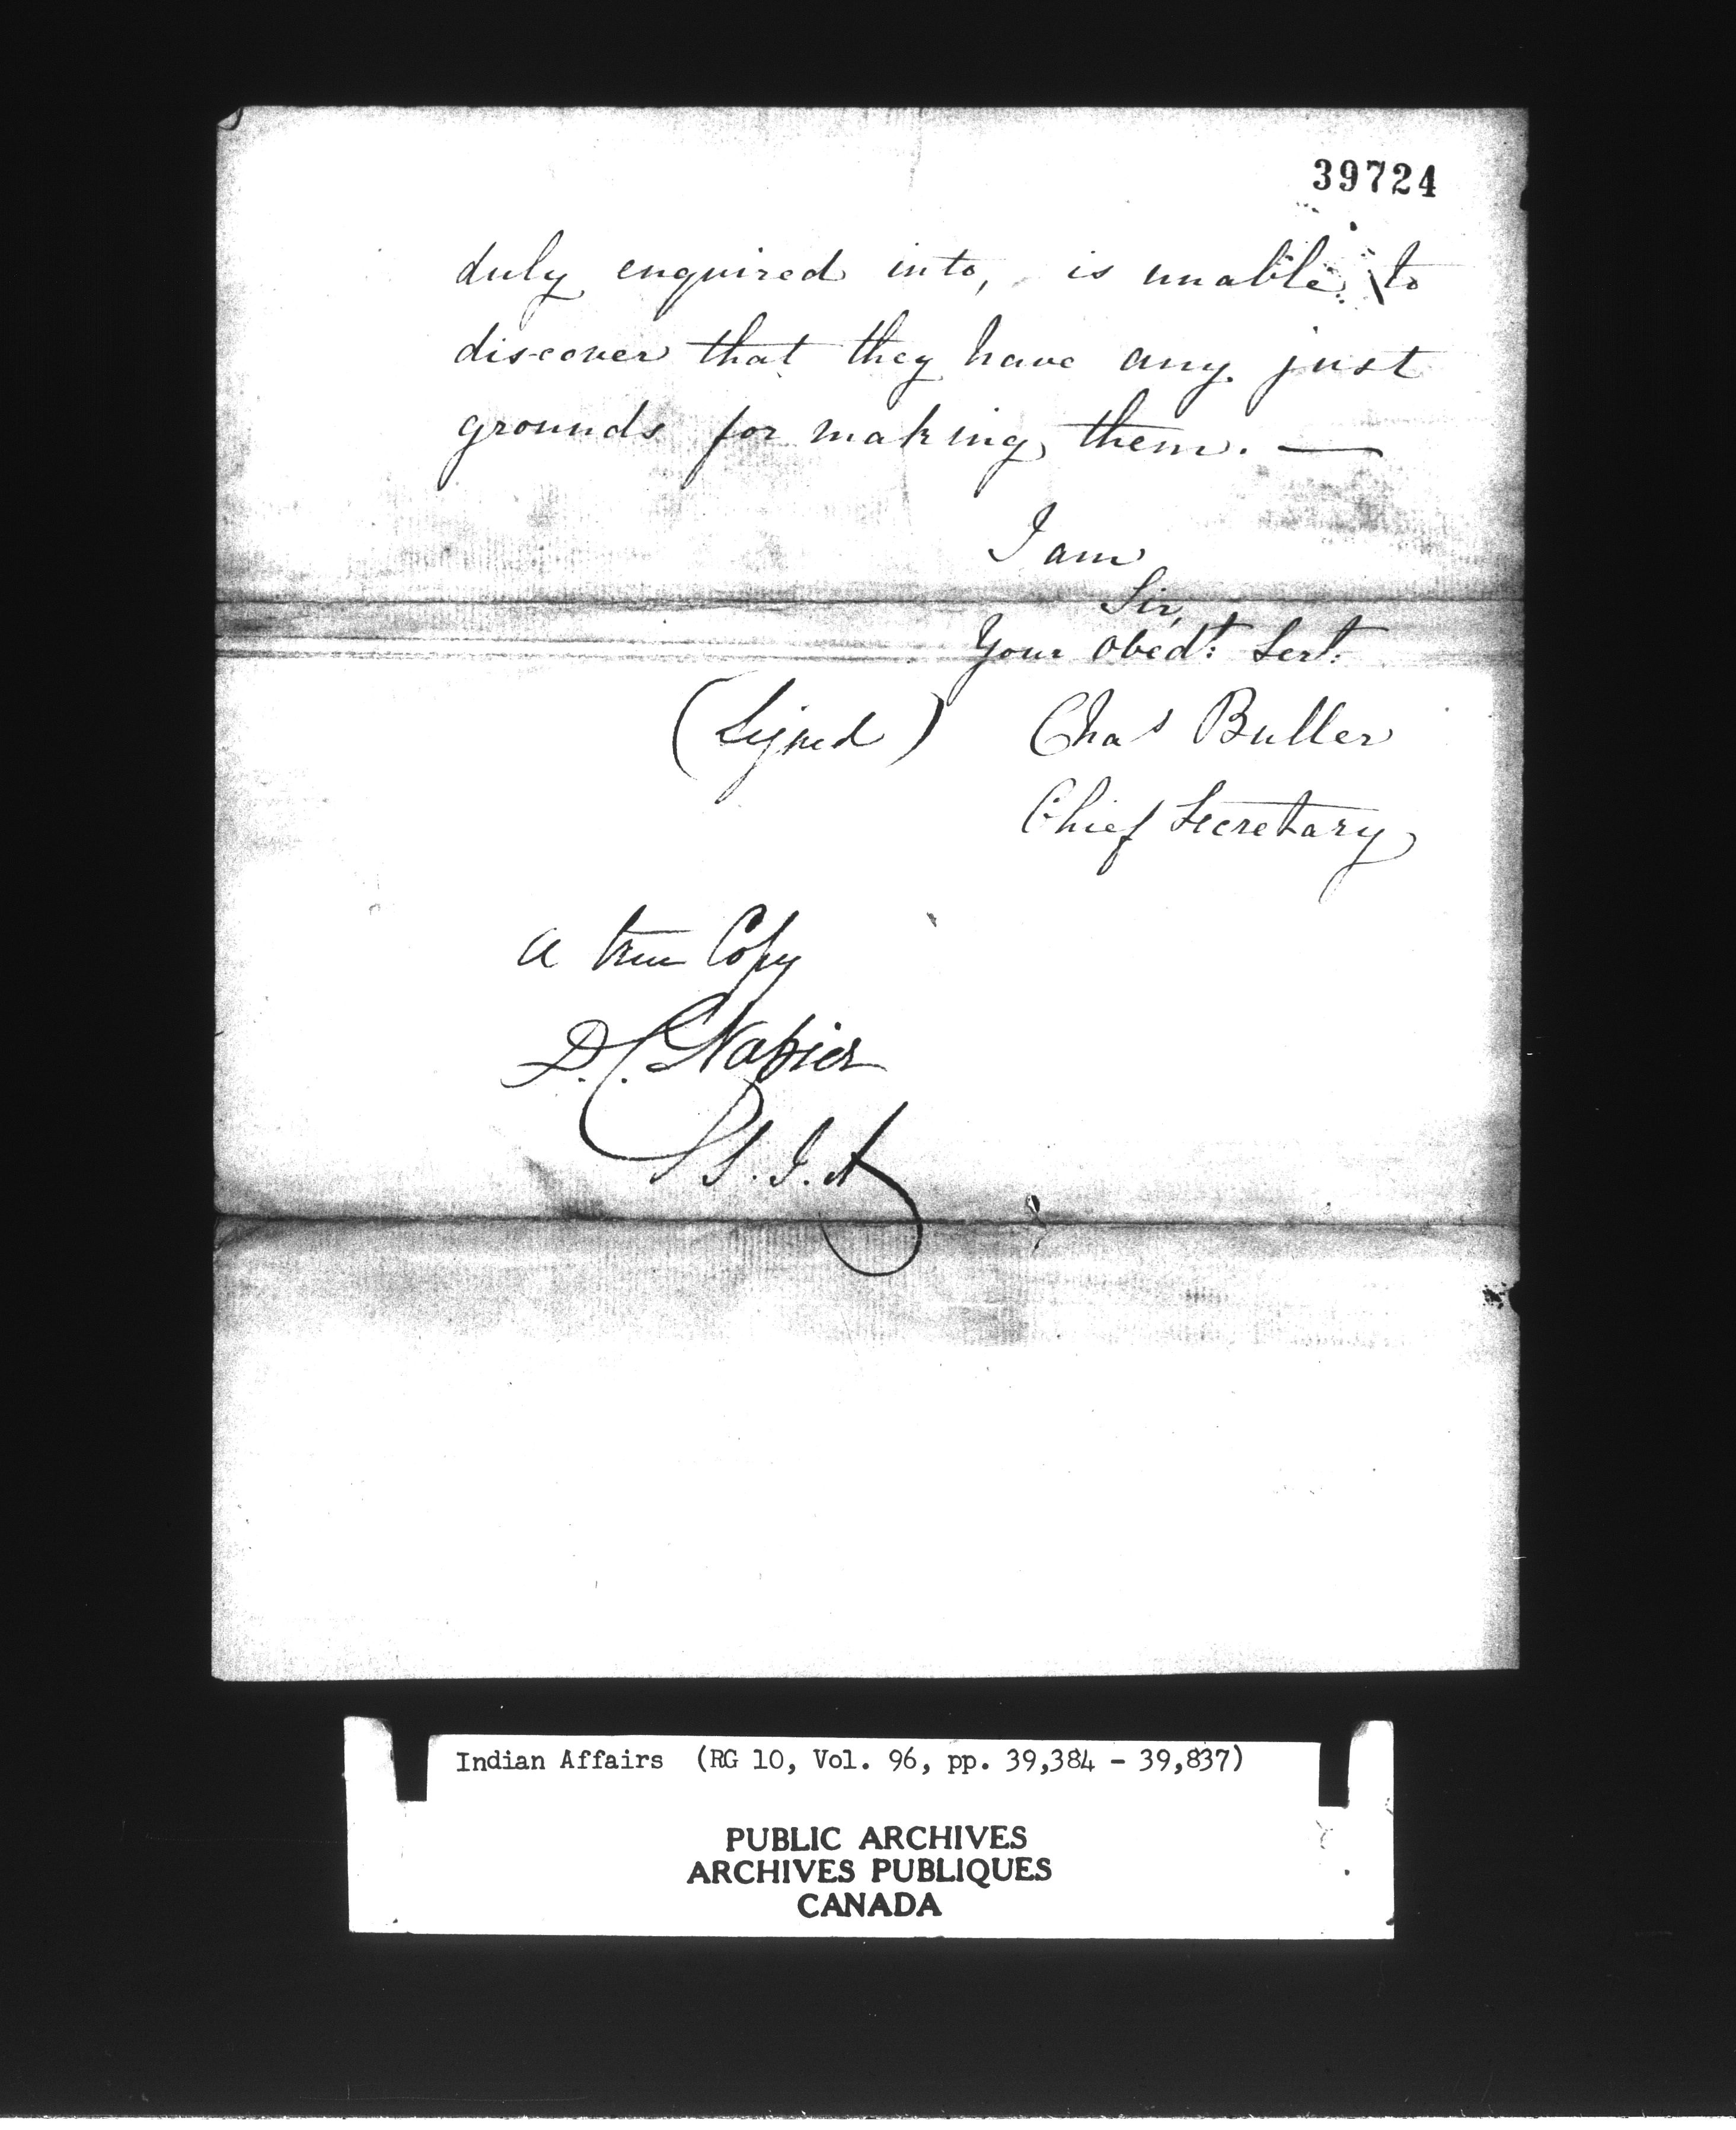 39724
duly enquired into, is unable to
discover that they have any just
grounds for making them. —
I am
Sir,
Your Obedt: Sert:
(Signed) Chas Buller
Chief Secretary
A true Copy
D. C. Napier
S. I. A
Indian Affairs (RG 10, Vol. 96, pp. 39,384 - 39,837)
PUBLIC ARCHIVES
ARCHIVES PUBLIQUES
CANADA